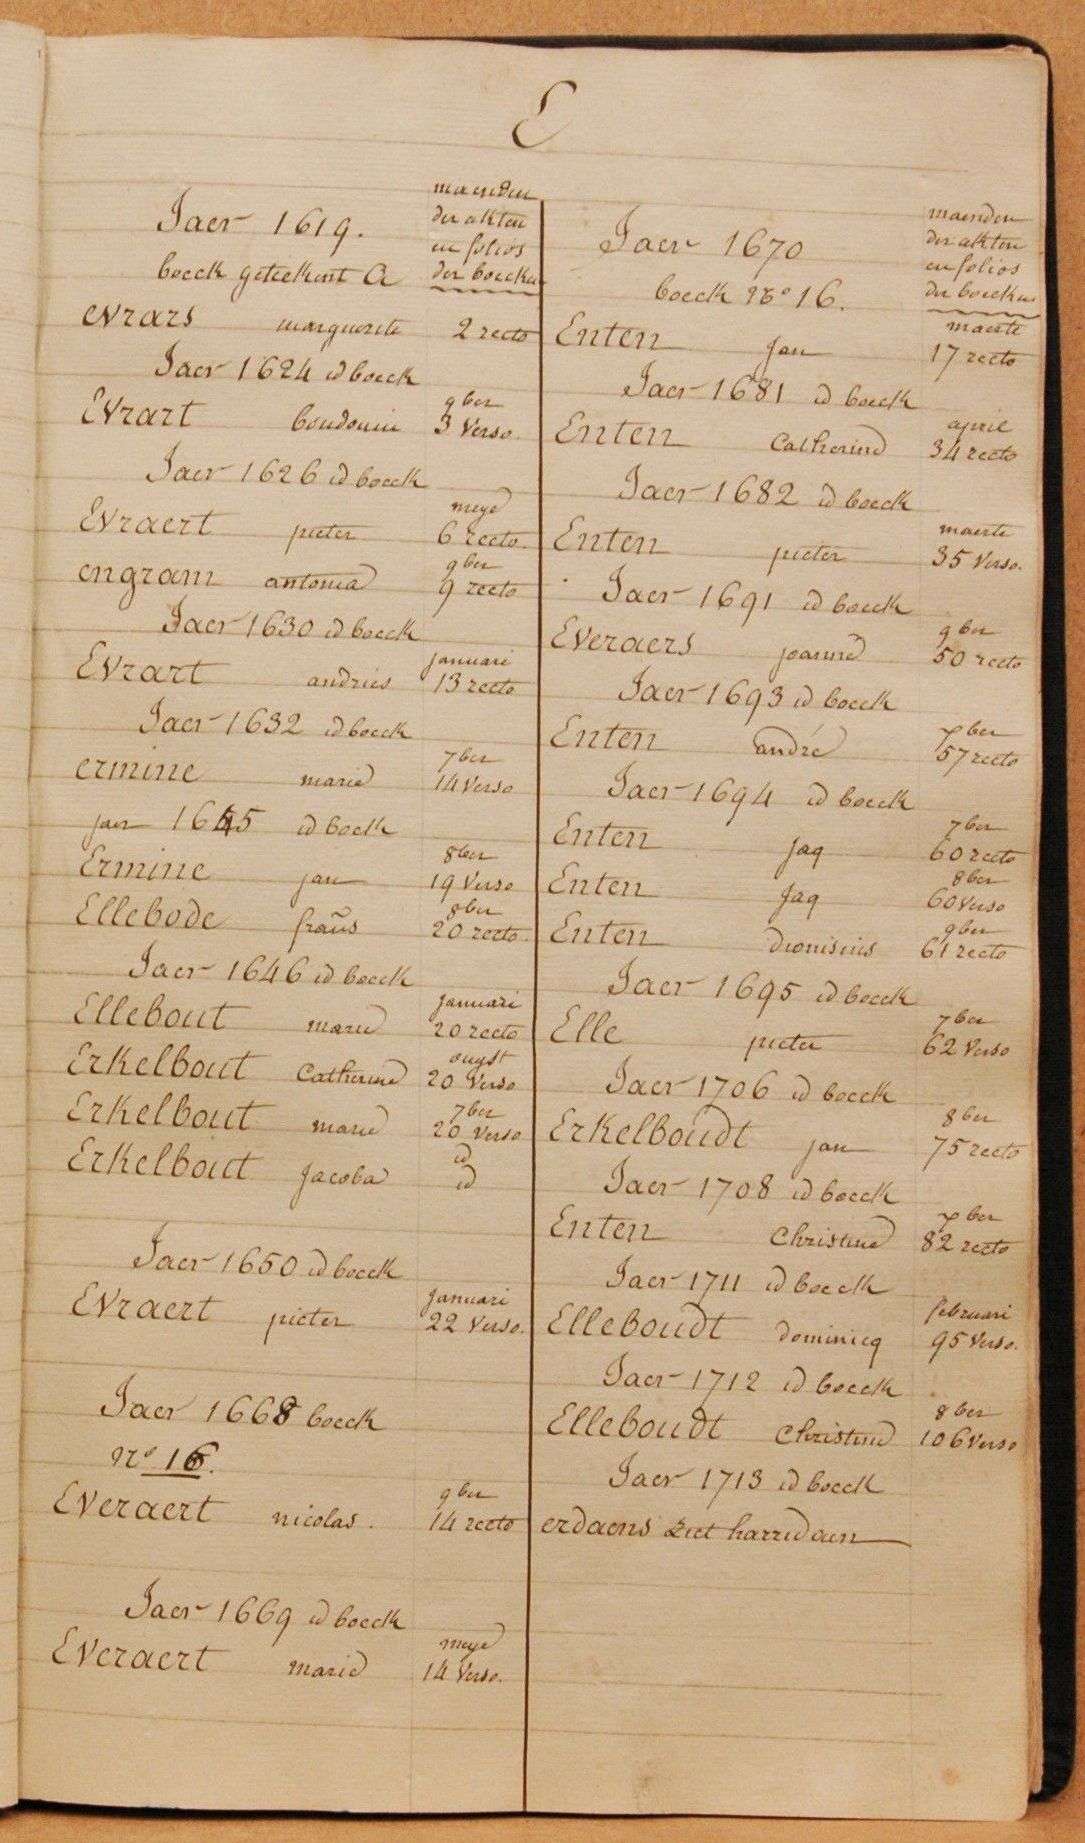 E
maenden
Jaer 1619. der akten
en folios
boeck geteekent A der boecken
evrars marguerite 2 recto
Jaer 1624 id boeck
9ber
Evrart boudouin 3 Verso.
Jaer 1626 id boeck
meye
Evraert pieter 6 recto.
9ber
engram antonia 9 recto
Jaer 1630 id boeck
januari
Evrart andries 13 recto
Jaer 1632 id boeck
7ber
ermine marie 14 Verso
jaer 1645 id boeck
8ber
Ermine jan 19 Verso
8ber
Ellebode frañs 20 recto.
Jaer 1646 id boeck
januari
Ellebout marie 20 recto
ougst
Erkelbout Catherine 20 Verso
7ber
Erkelbout marie 20 Verso
id
Erkelbout Jacoba id
Jaer 1650 id boeck
Januari
Evraert pieter 22 Verso.
Jaer 1668 boeck
n° 16.
9ber
Everaert nicolas. 14 recto
Jaer 1669 id boeck
meye
Everaert marie 14 Verso.
maenden
Jaer 1670 der akten
en folios
boeck N° 16. der boecken
maerte
Enten Jan 17 recto
Jaer 1681 id boeck
april
Enten Catherine 34 recto
Jaer 1682 id boeck
maerte
Enten pieter 35 Verso.
Jaer 1691 id boeck
9ber
Everaers joanne 50 recto
Jaer 1693 id boeck
7ber
Enten andré 57 recto
Jaer 1694 id boeck
7ber
Enten jaq 60 recto
8ber
Enten Jaq 60 Verso
9ber
Enten Dionisius 61 recto
Jaer 1695 id boeck
7ber
Elle pieter 62 Verso
Jaer 1706 id boeck
8ber
Erkelboudt jan 75 recto
Jaer 1708 id boeck
7ber
Enten Christine 82 recto
Jaer 1711 id boeck
februari
Elleboudt dominicq 95 Verso.
Jaer 1712 id boeck
8ber
Elleboudt Christine 106 Verso
Jaer 1713 id boeck
erdaens ziet harridaen